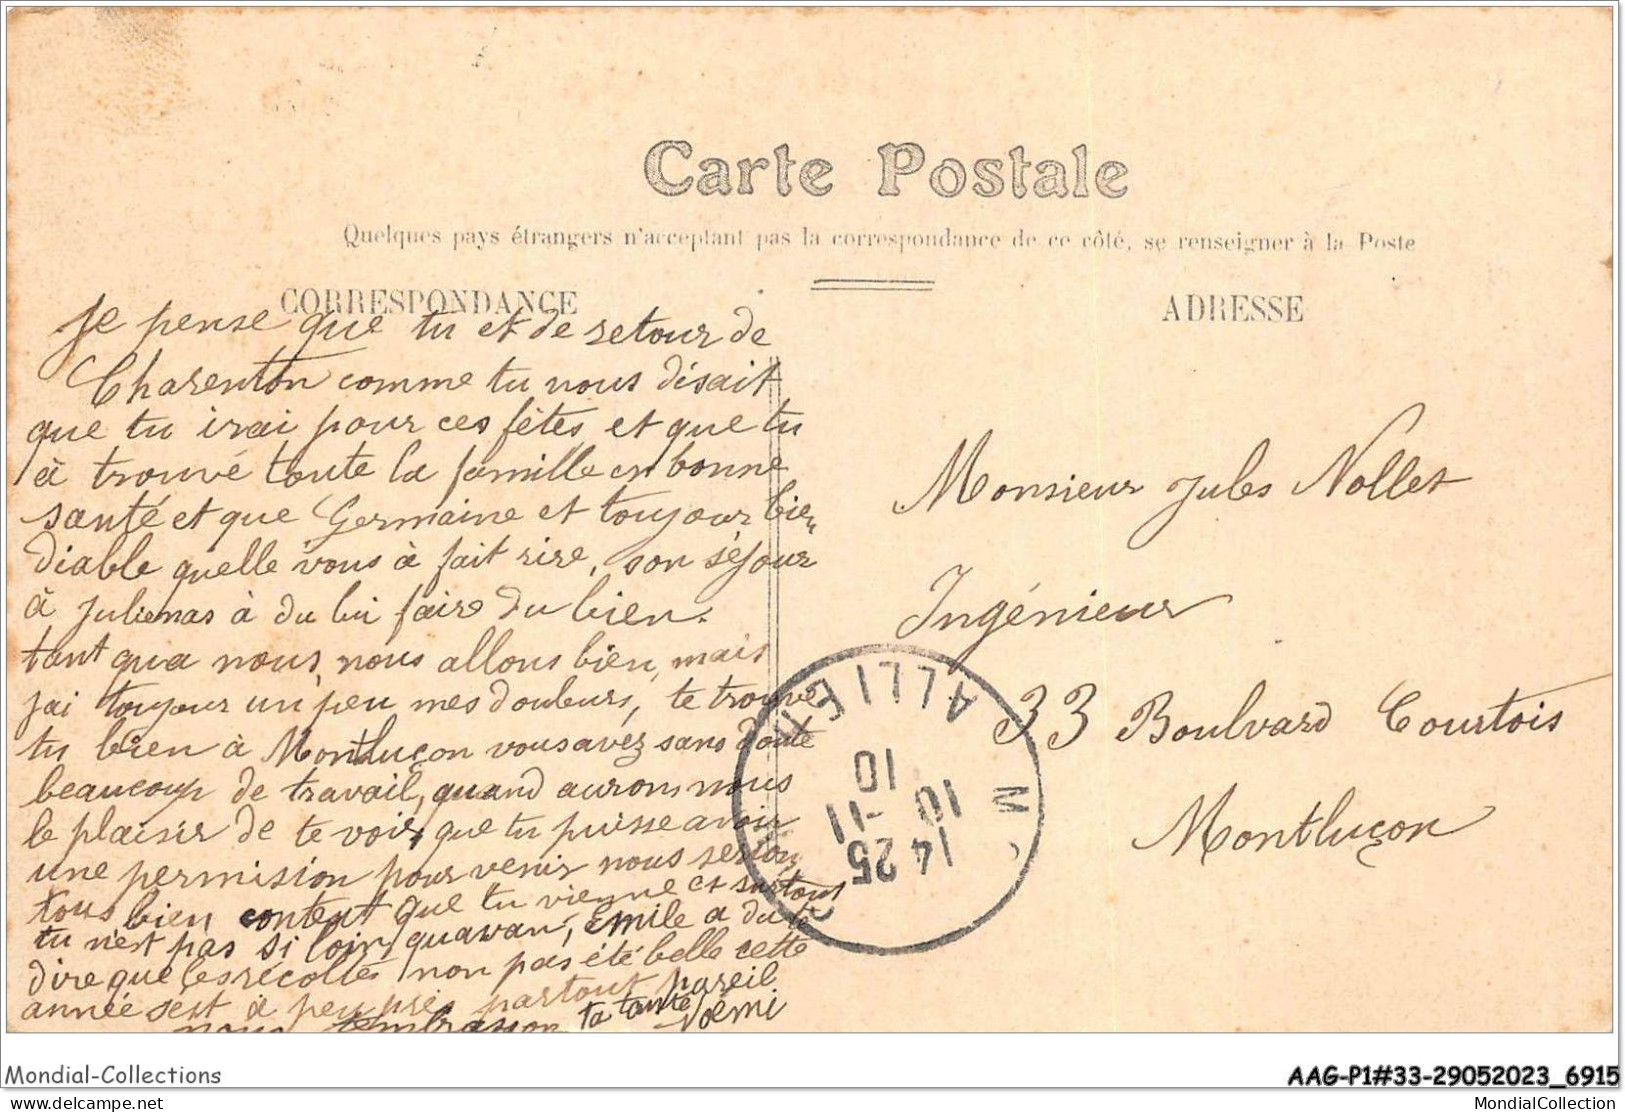 Carte Postale
Quelques pays étrangers n'acceptant pas la correspondance de ce côté, se renseigner à la Poste
CORRESPONDANCE
Je pense que tu et de retour de
Charenton comme tu nous disait
que tu irai pour ces fêtes et que tu
à trouvé toute la famille en bonne
santé et que Germaine et toujour bien
diable quelle vous à fait rire, son séjour
à Julienas à du lui faire du bien.
tant qua nous, nous allons bien, mais
jai toujour un peu mes douleurs, te trouve
tu bien à Montluçon vous avez sans doute
beaucoup de travail, quand aurons nous
le plaisir de te voir, que tu puisse avoir
une permision pour venir nous serions
tous bien content que tu vienne et surtout
tu n'est pas si loin quavan, Emile a du te
dire que les récoltes non pas été belle cette
année sest à peu près partout pareil
nous tembrasson ta tante Noémi
ADRESSE
Monsieur Jules Nollet
Ingénieur
33 Boulvard Courtois
Montluçon
ALLIER
14 25
10 -11
10
Mondial-Collections
AAG-P1#33-29052023_6915
delcampe.net
MondialCollection